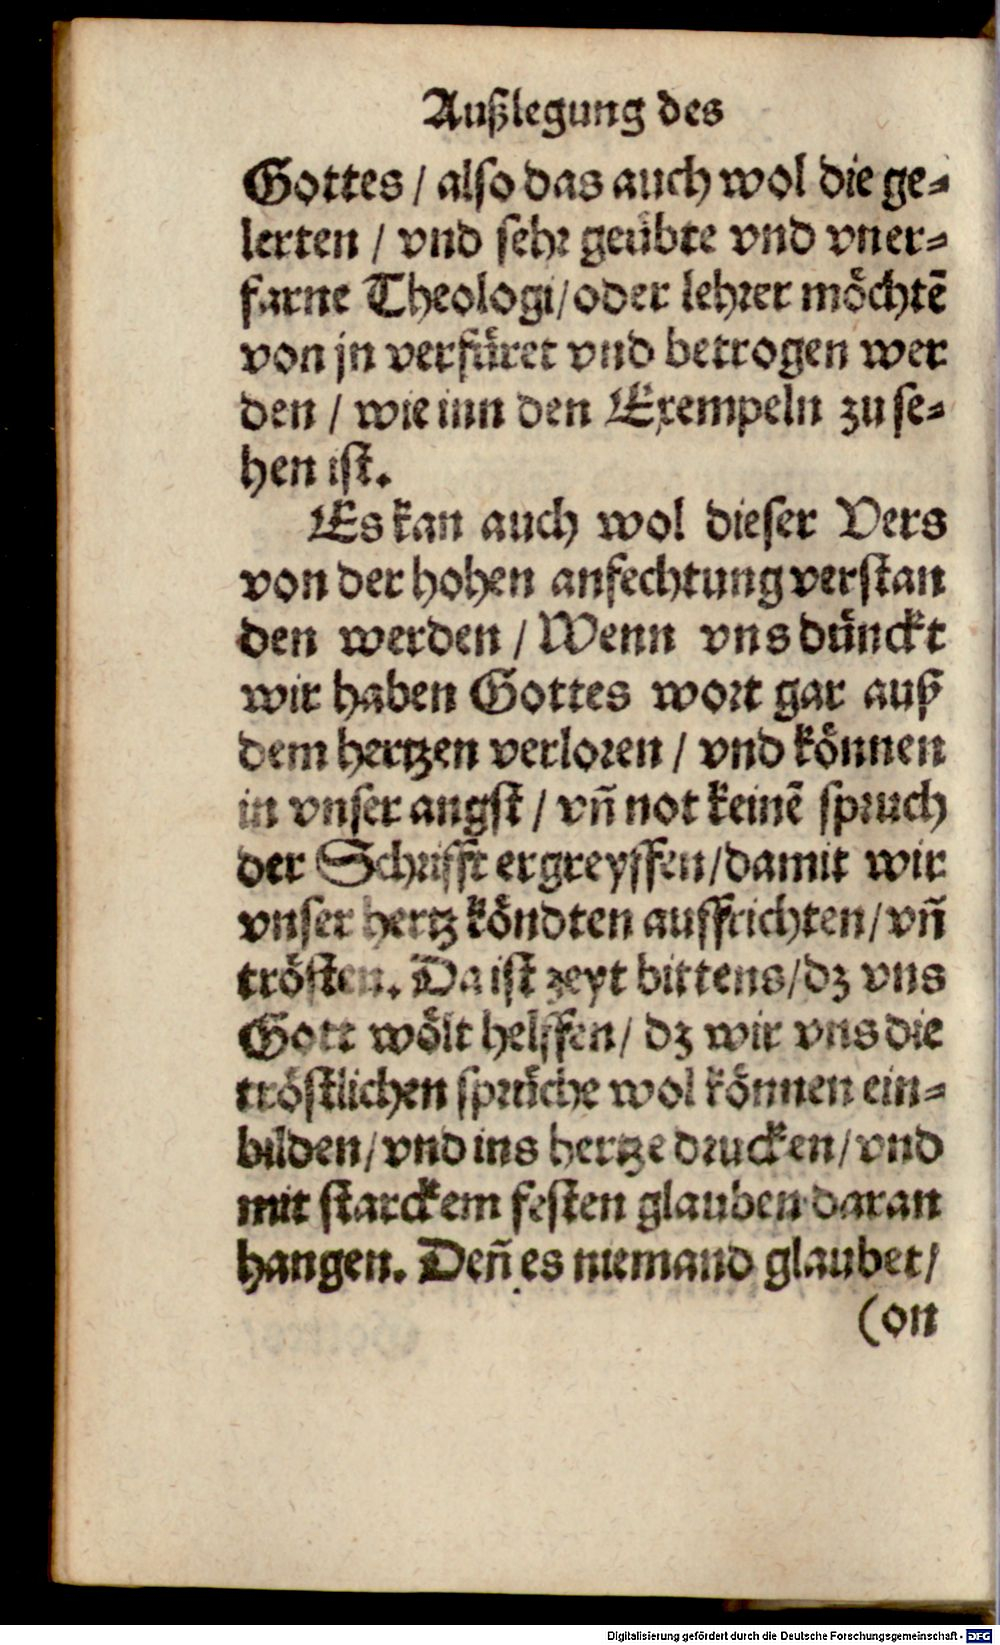 Außlegung des
Gottes / also das auch wol die ge-
lerten / vnd sehr geübte vnd vner-
farne Theologi/oder lehrer möchtē
von jn verfüret vnd betrogen wer
den / wie inn den Exempeln zu se-
hen ist.
Es kan auch wol dieser Vers
von der hohen anfechtung verstan
den werden / Wenn vns dünckt
wir haben Gottes wort gar auß
dem hertzen verloren / vnd können
in vnser angst / vñ not keinē spruch
der Schrifft ergreyffen/damit wir
vnser hertz köndten auffrichten/vñ
trösten. Da ist zeyt bittens/dz vns
Gott wölt helffen/ dz wir vns die
tröstlichen sprüche wol können ein-
bilden/vnd ins hertze drucken/vnd
mit starckem festen glauben daran
hangen. Deñ es niemand glaubet/
(on
Digitalisierung gefördert durch die Deutsche Forschungsgemeinschaft - DFG